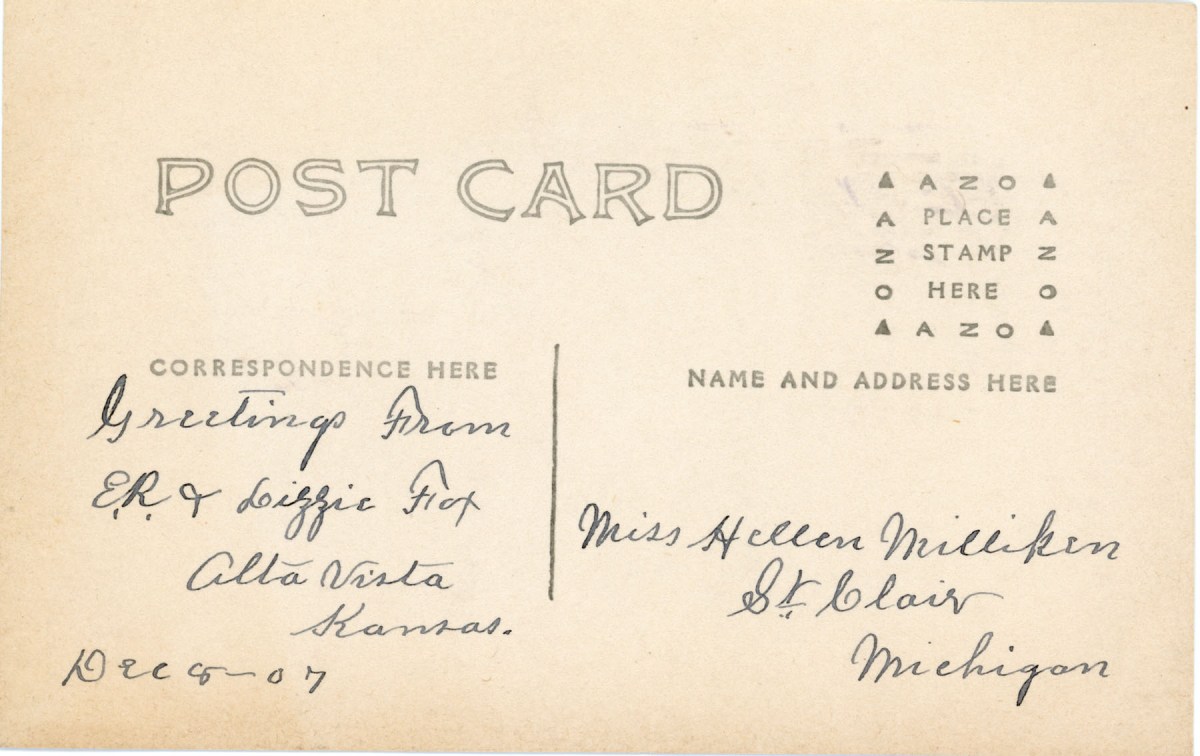 POST CARD
▲ A Z O ▲
A PLACE A
Z STAMP Z
O HERE O
▲ A Z O ▲
CORRESPONDENCE HERE
Greetings From
E.R. & Lizzie Fox
Alta Vista
Kansas.
Dec 8-07
NAME AND ADDRESS HERE
Miss Hellen Milliken
St. Clair
Michigan